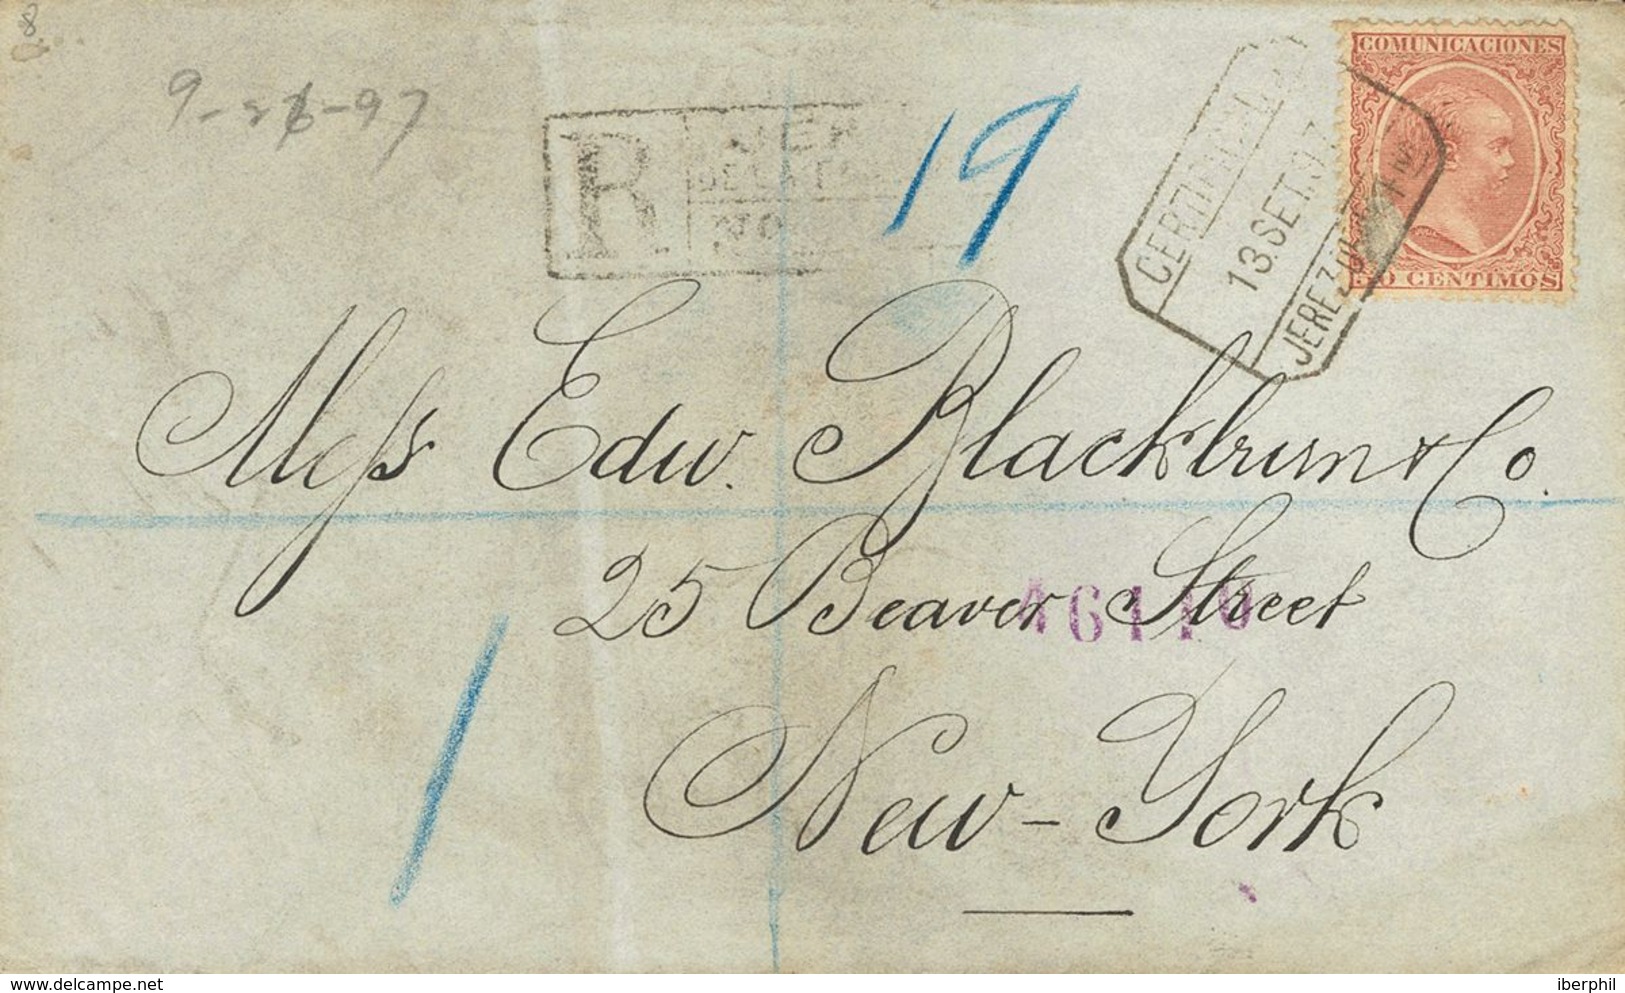 8
9-26-97
R
DE LA
No
19
CERTIFICADO
13.SET.97
JEREZ
COMUNICACIONES
CENTIMOS
Mess Edw. Blackburn & Co.
25 Beaver Street
46110
New-York
1
delcampe.net
iberphil